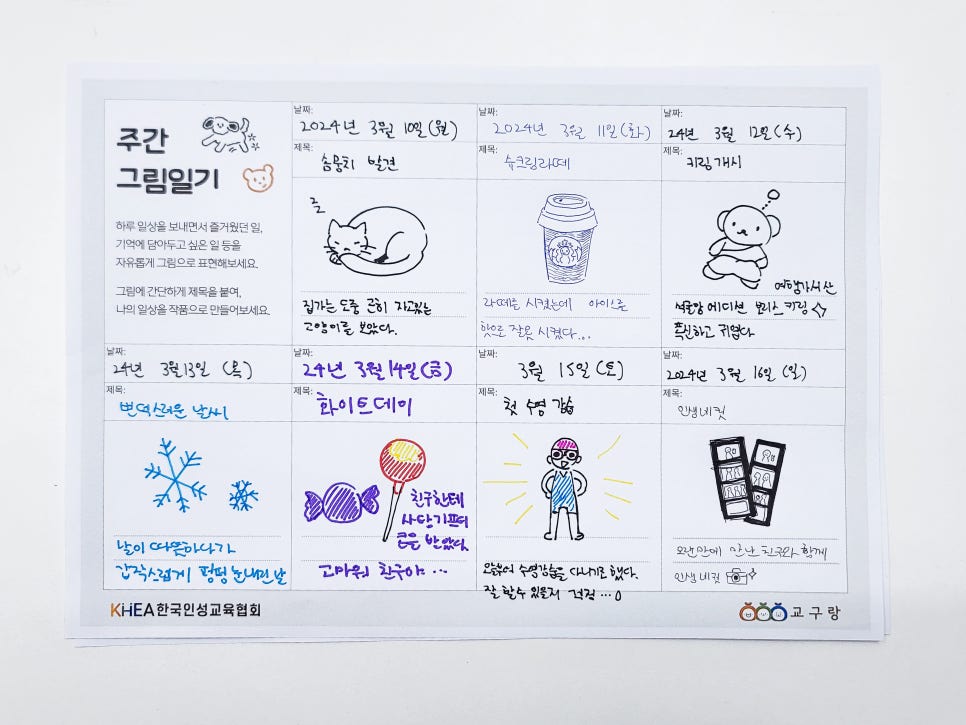 주간
그림일기
하루 일상을 보내면서 즐거웠던 일,
기억에 담아두고 싶은 일 등을
자유롭게 그림으로 표현해보세요.
그림에 간단하게 제목을 붙여,
나의 일상을 작품으로 만들어보세요.
날짜:
2024년 3월 10일(월)
제목:
솜뭉치 발견
z
집가는 도중 곤히 자고있는
고양이를 보았다.
날짜:
2024년 3월 11일(화)
제목:
슈크림라떼
라떼를 시켰는데 아이스를
핫으로 잘못 시켰다...
날짜:
24년 3월 12일(수)
제목:
키링개시
여행가서 산
석굴암 에디션 보리스 키링
푹신하고 귀엽다
날짜:
24년 3월 13일 (목)
제목:
변덕스러운 날씨
날이 따뜻하다가
갑작스럽게 펑펑 눈내린 날
날짜:
24년 3월 14일(금)
제목:
화이트데이
친구한테
사탕기프티
콘을 받았다
고마워 친구야 ...
날짜:
3월 15일(토)
제목:
첫 수영 강습
오늘부터 수영강습을 다니기로 했다.
잘 할 수 있을지 걱정...
날짜:
2024년 3월 16일 (일)
제목:
인생네컷
오랜만에 만난 친구와 함께
인생네컷
KHEA한국인성교육협회
교구랑